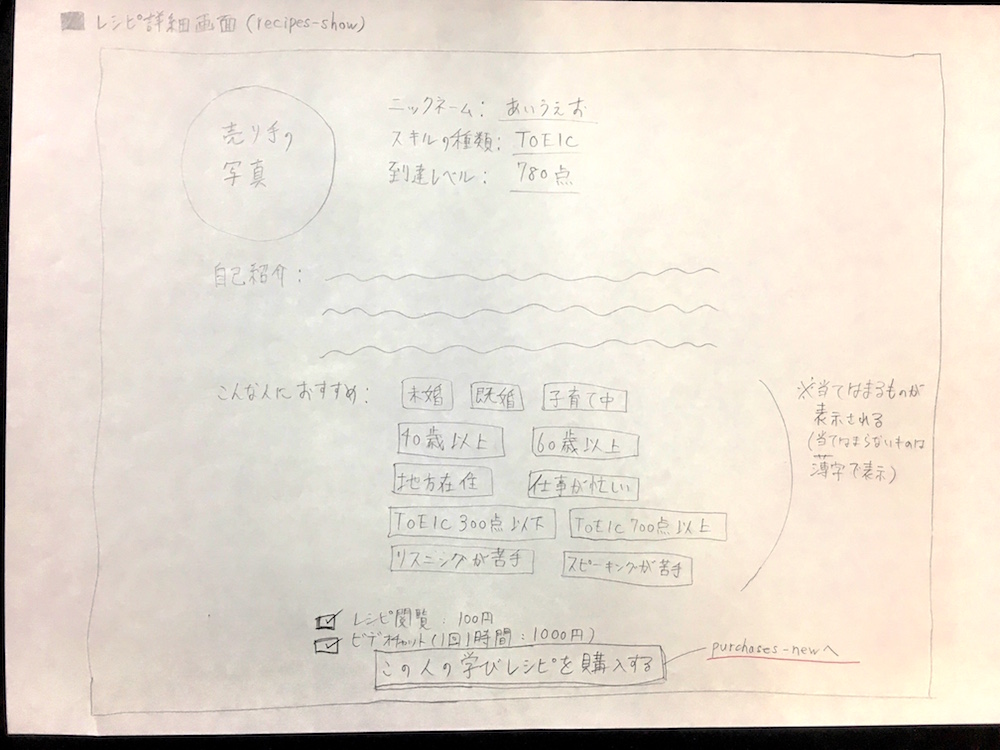 レシピ詳細画面(recipes-show)
売り手の
写真
ニックネーム: あいうえお
スキルの種類: TOEIC
到達レベル: 780点
自己紹介:
こんな人におすすめ: 未婚 既婚 子育て中
40歳以上 60歳以上
地方在住 仕事が忙しい
TOEIC 300点以下 TOEIC 700点以上
リスニングが苦手 スピーキングが苦手
※当てはまるものが
表示される
(当てはまらないものは
薄字で表示)
レシピ閲覧: 100円
ビデオチャット(1回1時間:1000円)
この人の学びレシピを購入する
purchases-newへ